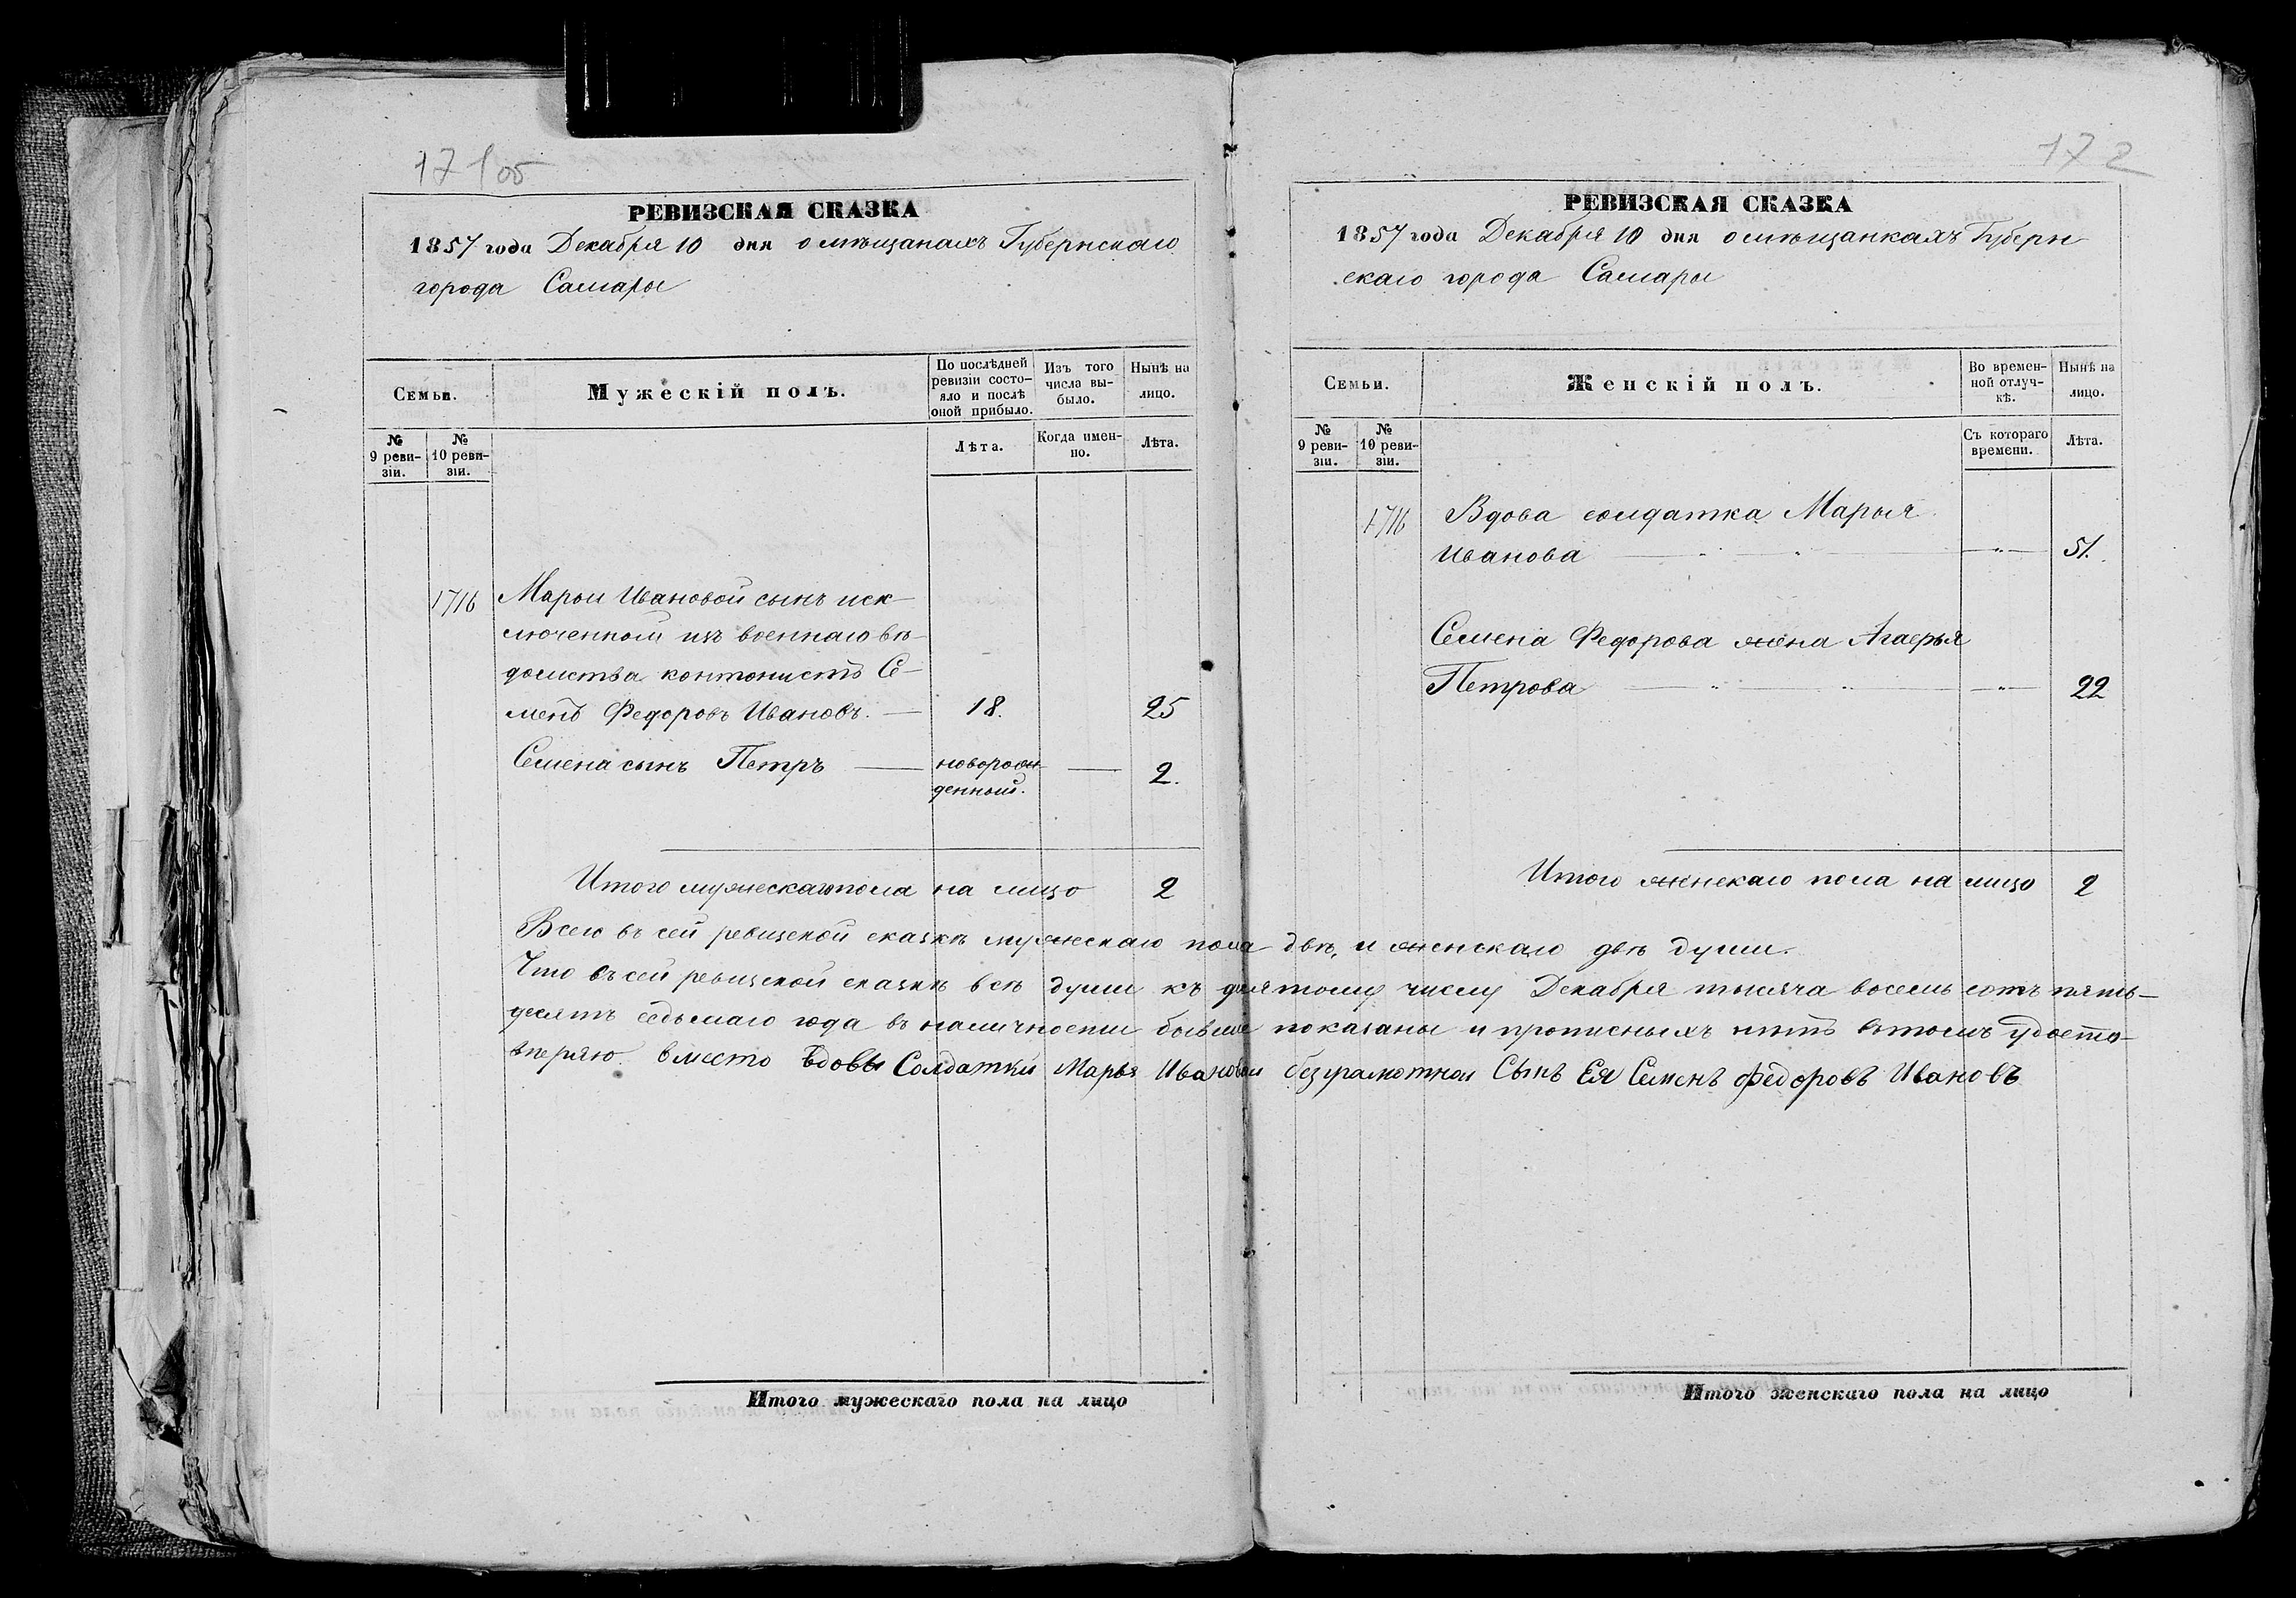 171об
РЕВИЗСКАЯ СКАЗКА
1857 года Декабря 10 дня о мѣщанахъ Губернскаго
города Самары
Семьи.
Мужескій полъ.
По послѣдней
ревизіи состо-
яло и послѣ
оной прибыло.
Изъ того
числа вы-
было.
Нынѣ на
лицо.
№
9 реви-
зіи.
№
10 реви-
зіи.
Лѣта.
Когда имен-
но.
Лѣта.
1716 Марьи Ивановой сынъ иск-
люченной изъ военнаго вѣ-
домства контонистъ Се-
менъ Федоровъ Ивановъ. — 18. 25
Семена сынъ Петръ — новорож-
денный. — 2.
Итого мужескаго пола на лицо 2
172
РЕВИЗСКАЯ СКАЗКА
1857 года Декабря 10 дня о мѣщанкахъ Губерн
скаго города Самары
Семьи.
Женскій полъ.
Во времен-
ной отлуч-
кѣ.
Нынѣ на
лицо.
№
9 реви-
зіи.
№
10 реви-
зіи.
Съ котораго
времени.
Лѣта.
1716 Вдова солдатка Марья
Иванова — " — " — " — 51.
Семена Федорова жена Агафья
Петрова — " — " — " — 22
Итого женскаго пола на лицо 2
Всего въ сей ревизской сказкѣ мужскаго пола двѣ, и женскаго двѣ души.
Что въ сей ревизской сказкѣ всѣ души къ десятому числу Декабря тысяча восемь сотъ пять-
десятъ седьмаго года въ наличности бывшие показаны и прописныхъ нѣтъ въ томъ удосто-
вѣряю. вместо Вдовы Солдатки Марья Ивановой безграмотной Сынъ Ея Семенъ Федоровъ Ивановъ
Итого мужескаго пола на лицо
Итого женскаго пола на лицо